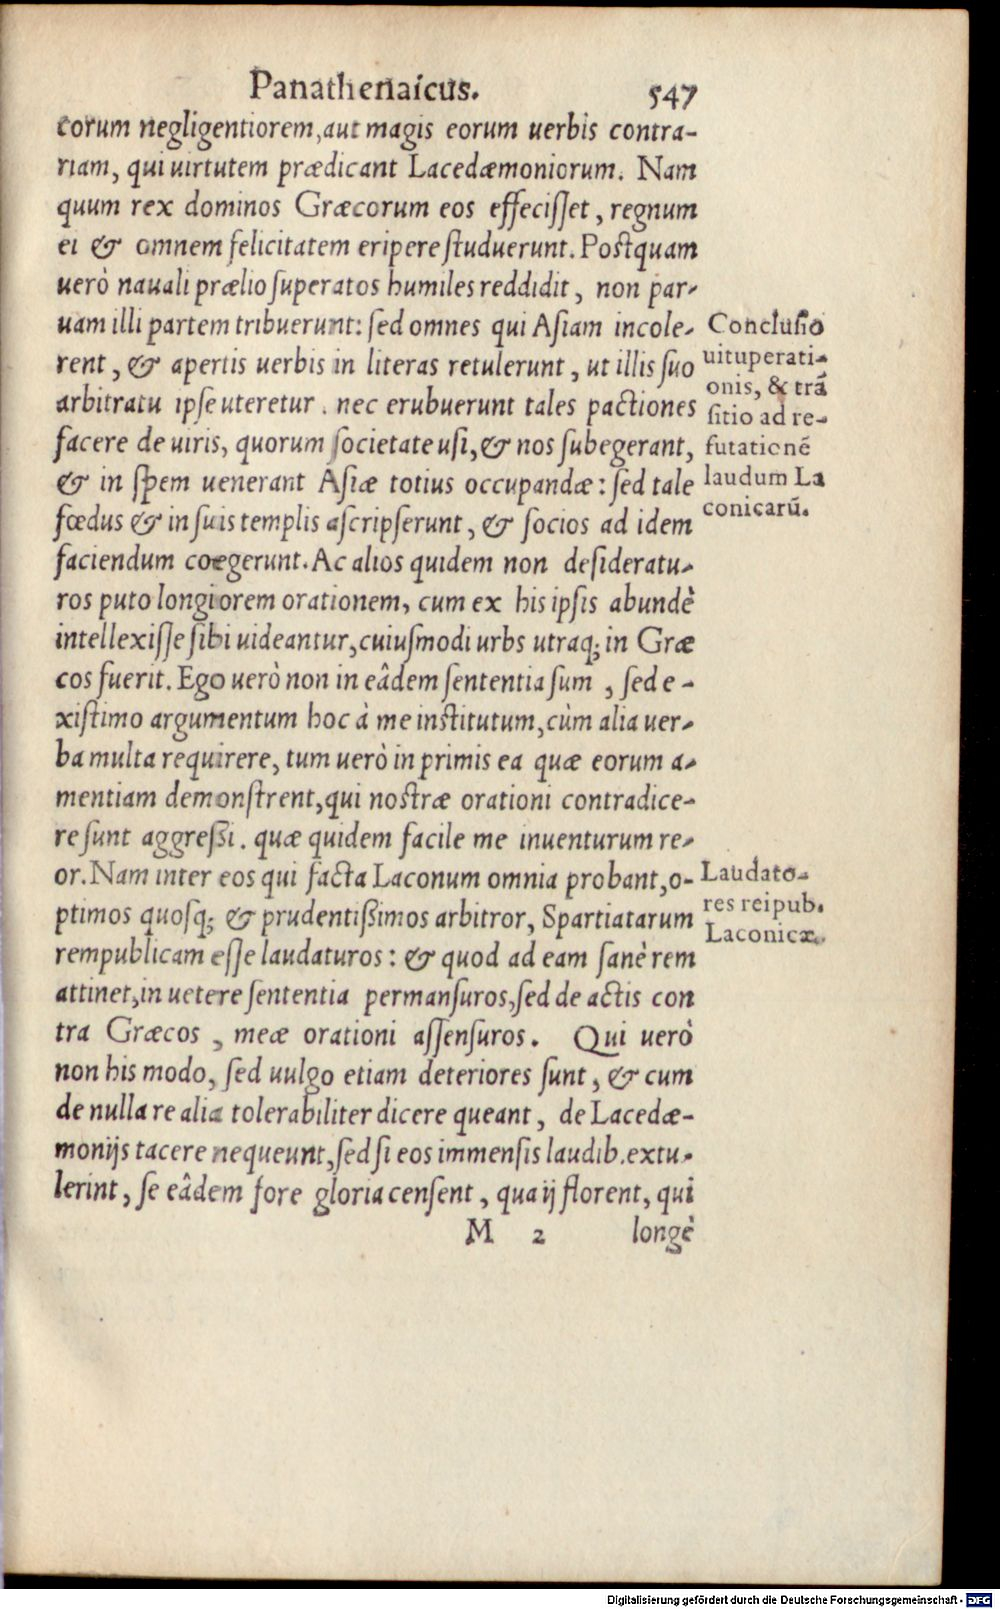 Panathenaicus. 547
corum negligentiorem, aut magis eorum uerbis contra-
riam, qui uirtutem prædicant Lacedæmoniorum. Nam
quum rex dominos Græcorum eos effecisset, regnum
ei & omnem felicitatem eripere studuerunt. Postquam
uerò nauali prælio superatos humiles reddidit, non par-
uam illi partem tribuerunt: sed omnes qui Asiam incole-
rent, & apertis uerbis in literas retulerunt, ut illis suo
arbitratu ipse uteretur. nec erubuerunt tales pactiones
facere de uiris, quorum societate usi, & nos subegerant,
& in spem uenerant Asiæ totius occupandæ: sed tale
fœdus & in suis templis ascripserunt, & socios ad idem
faciendum coegerunt. Ac alios quidem non desideratu-
ros puto longiorem orationem, cum ex his ipsis abundè
intellexisse sibi uideantur, cuiusmodi urbs utraq; in Græ
cos fuerit. Ego uerò non in eâdem sententia sum, sed e-
xistimo argumentum hoc à me institutum, cùm alia uer-
ba multa requirere, tum uerò in primis ea quæ eorum a-
mentiam demonstrent, qui nostræ orationi contradice-
re sunt aggreßi. quæ quidem facile me inuenturum re-
or. Nam inter eos qui facta Laconum omnia probant, o-
ptimos quosq; & prudentißimos arbitror, Spartiatarum
rempublicam esse laudaturos: & quod ad eam sanè rem
attinet, in uetere sententia permansuros, sed de actis con
tra Græcos, meæ orationi assensuros. Qui uerò
non his modo, sed uulgo etiam deteriores sunt, & cum
de nulla re alia tolerabiliter dicere queant, de Lacedæ-
monijs tacere nequeunt, sed si eos immensis laudib. extu-
lerint, se eâdem fore gloria censent, qua ij florent, qui
M 2 longè
Conclusio
uituperati-
onis, & trã
sitio ad re-
futationẽ
laudum La
conicarũ.
Laudato-
res reipub.
Laconicæ.
Digitalisierung gefördert durch die Deutsche Forschungsgemeinschaft - DFG